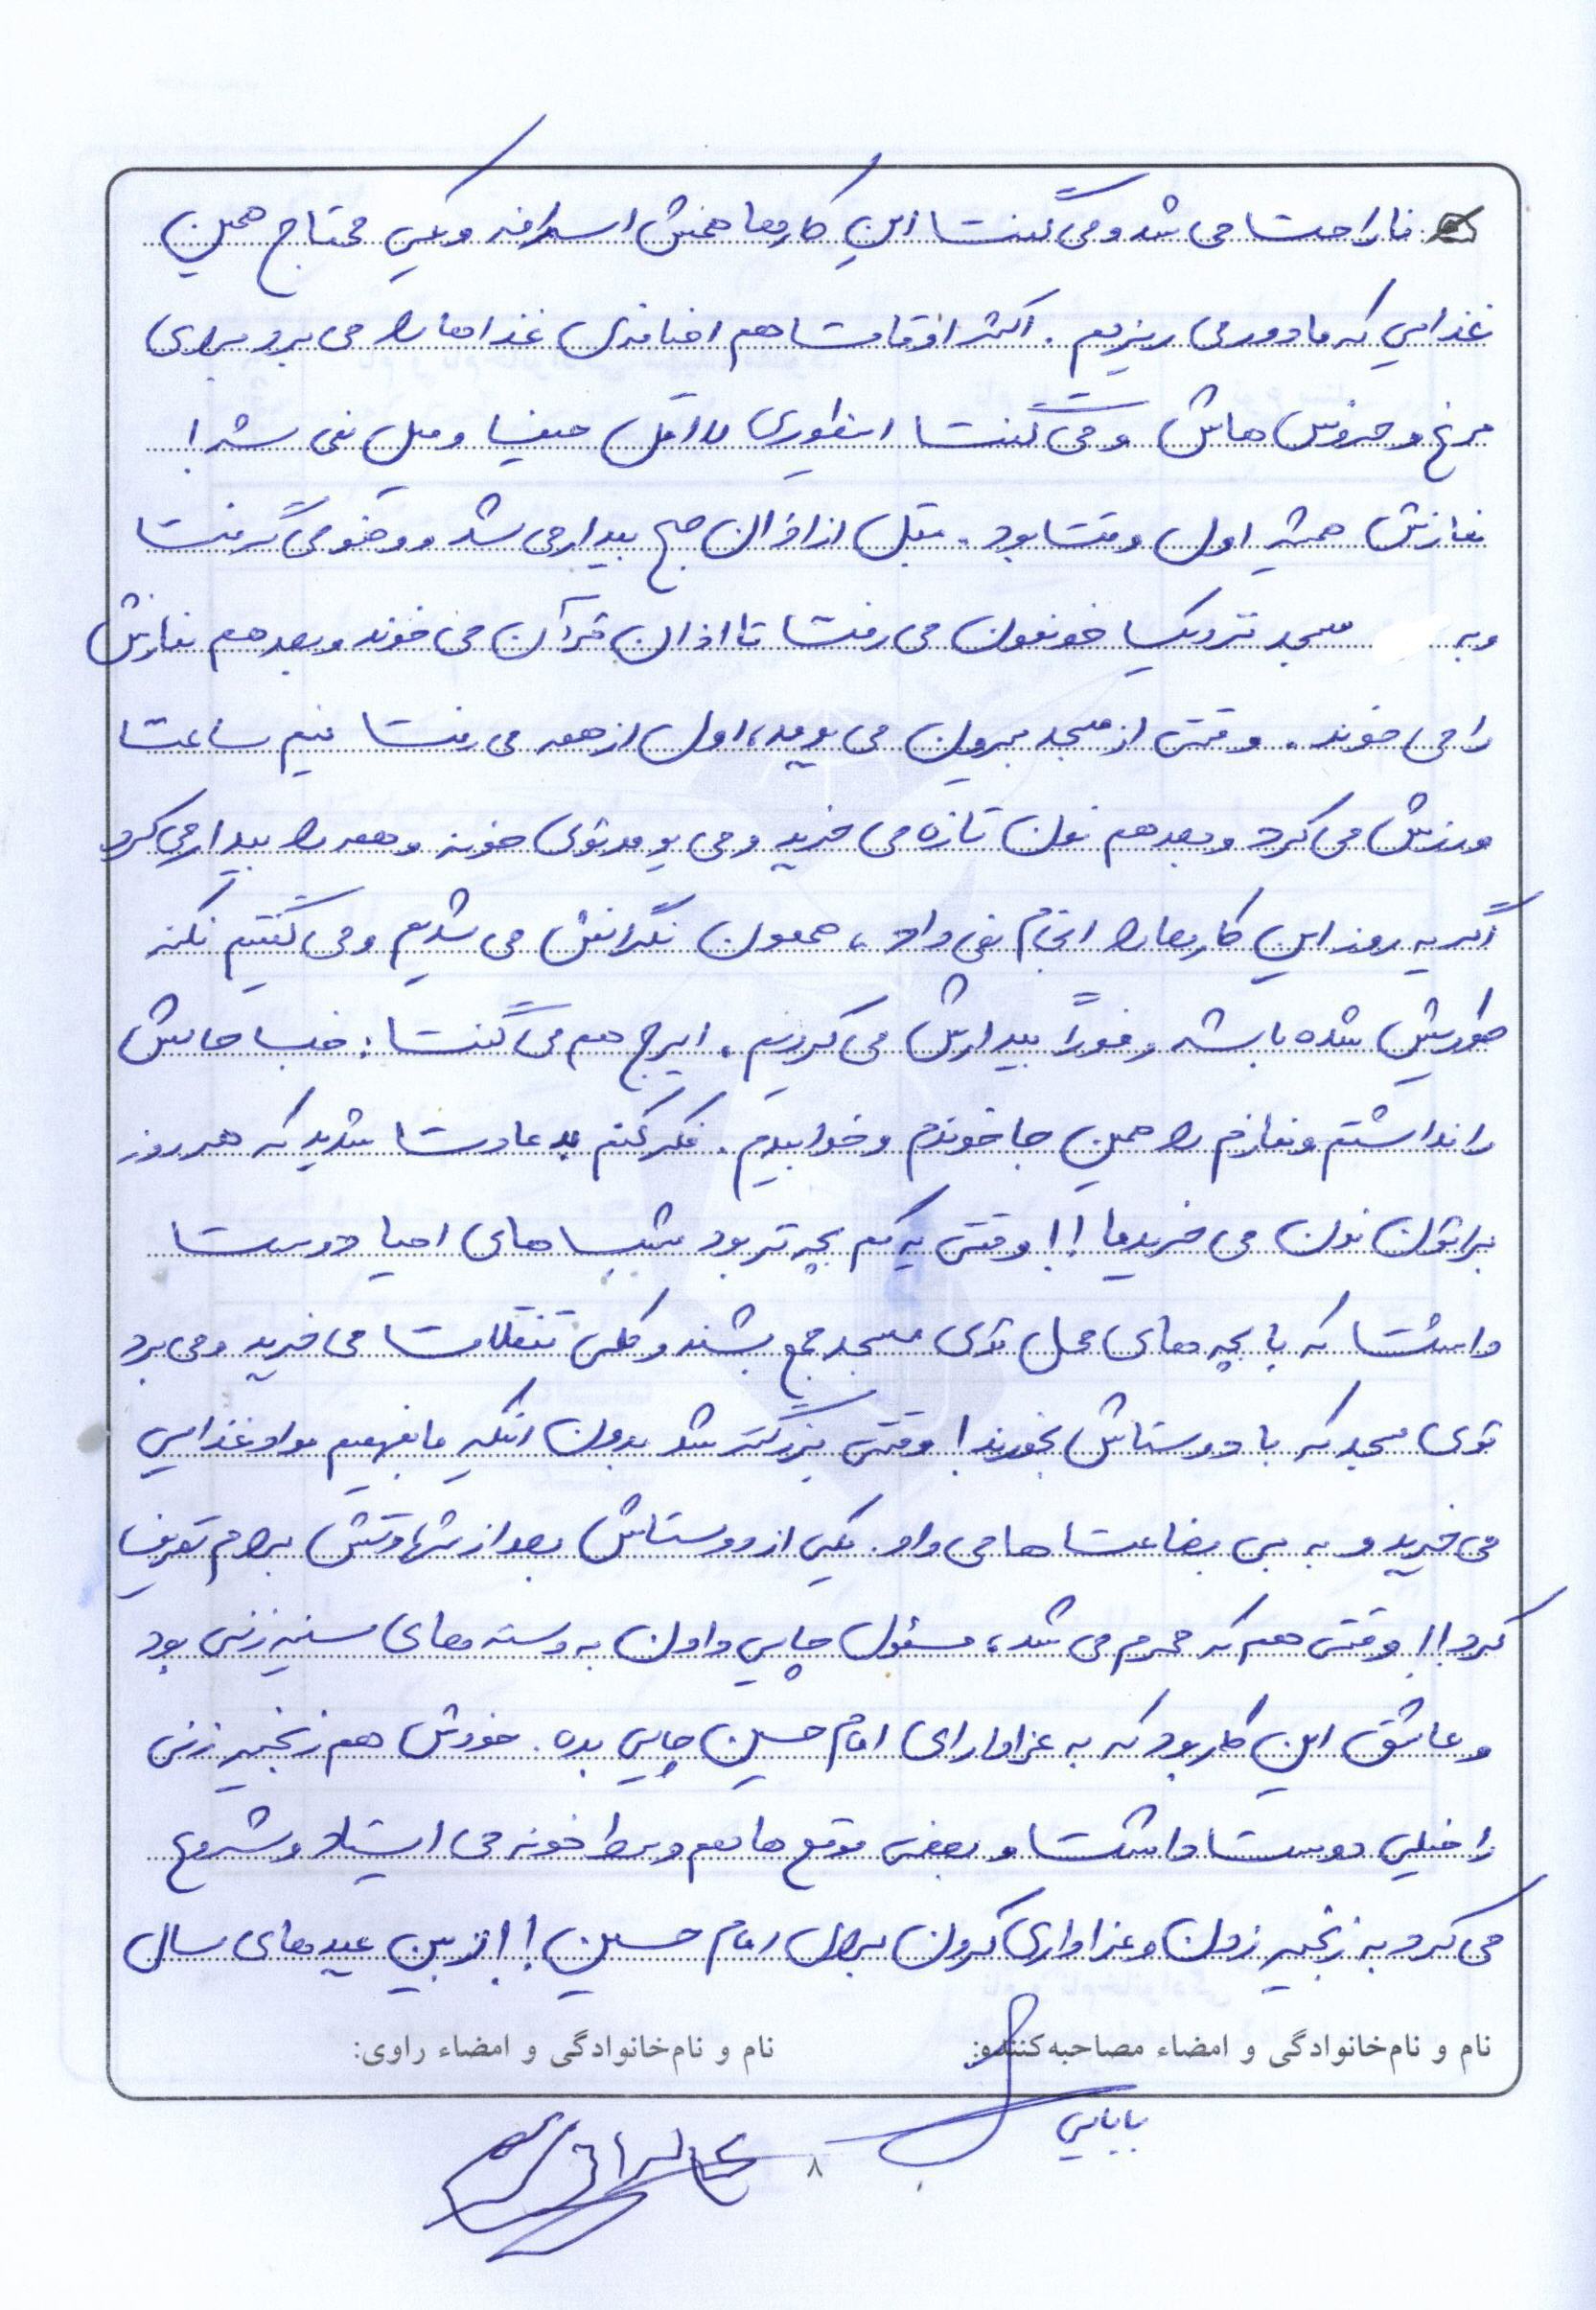 ناراحت می شد و می گفت این کارها همش اسرافه و یکی محتاج همین
غذایی که ما دور می ریزیم . اکثر اوقات هم اضافه ی غذاها را می برد برای
مرغ و خروس هاش و می گفت اینطوری لااقل حیف و میل نمی شه !
نمازش همیشه اول وقت بود . قبل از اذان صبح بیدار می شد و وضو می گرفت
و به مسجد نزدیک خونمون می رفت تا اذان قرآن می خوند و بعد هم نمازش
را می خوند . وقتی از مسجد بیرون می یومد ، اول از همه می رفت نیم ساعت
ورزش می کرد و بعد هم نون تازه می خرید و می یومد توی خونه و همه را بیدار می کرد
اگر یه روز این کارها را انجام نمی داد ، هممون نگرانش می شدیم و می گفتیم نکنه
طوریش شده باشه و فوراً بیدارش می کردیم . ایرج هم می گفت : خب حالش
را نداشتم و نمازم را همین جا خوندم و خوابیدم . فکر کنم بد عادت شدید که هر روز
براتون نون می خریدما !! وقتی یه کم بچه تر بود شب های احیا دوست
داشت که با بچه های محل توی مسجد جمع بشند و کلی تنقلات می خرید و می برد
توی مسجد که با دوستاش بخورند ! وقتی بزرگتر شد بدون اینکه ما بفهمیم مواد غذایی
می خرید و به بی بضاعت ها می داد . یکی از دوستاش بعد از شهادتش برام تعریف
کرد !! وقتی هم که محرم می شد ، مسئول چایی دادن به دسته های سینه زنی بود
و عاشق این کار بود که به عزادارای امام حسین چایی بده . خودش هم زنجیر زنی
را خیلی دوست داشت و بعضی موقع ها هم وسط خونه می ایستاد و شروع
می کرد به زنجیر زدن و عزاداری کردن برای امام حسین !! از بین عیدهای سال
نام و نام‌خانوادگی و امضاء مصاحبه‌کننده:
نام و نام‌خانوادگی و امضاء راوی:
بابایی
۸